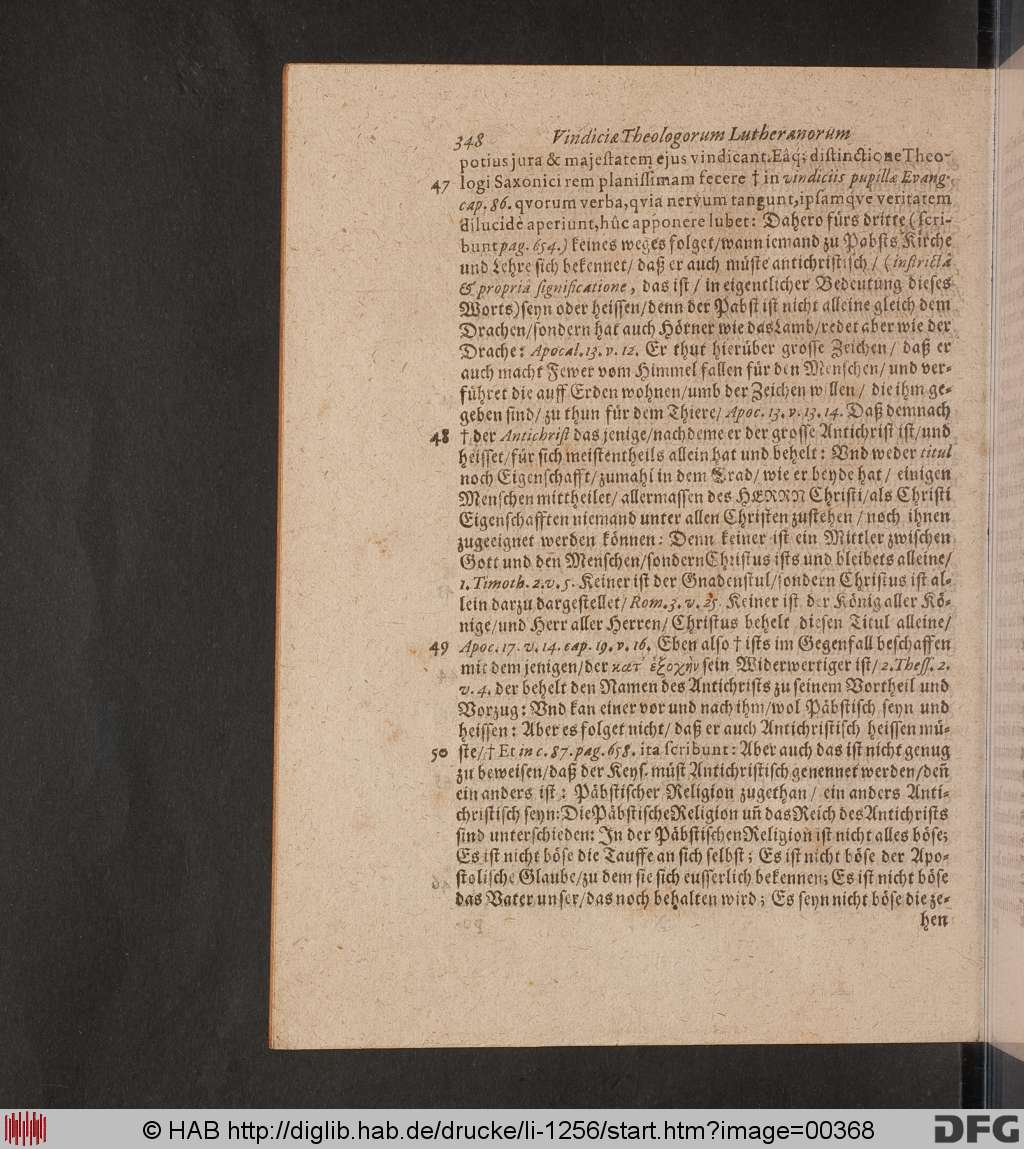 348 Vindiciæ Theologorum Lutheranorum
potius jura & majestatem ejus vindicant. Eâq; distinctione Theo-
47 logi Saxonici rem planissimam fecere † in vindiciis pupillæ Evang.
cap. 86. qvorum verba, qvia nervum tangunt, ipsamqve veritatem
dilucidè aperiunt, hûc apponere lubet: Dahero fürs dritte (scri-
bunt pag. 654.) keines weges folget/wann iemand zu Pabsts Kirche
und Lehre sich bekennet/ daß er auch müste antichristisch/ (in strictâ
& propriâ significatione, das ist/ in eigentlicher Bedeutung dieses
Worts) seyn oder heissen/denn der Pabst ist nicht alleine gleich dem
Drachen/sondern hat auch Hörner wie das Lamb/redet aber wie der
Drache: Apocal. 13. v. 12. Er thut hierüber grosse Zeichen/ daß er
auch macht Fewer vom Himmel fallen für den Menschen/ und ver-
führet die auff Erden wohnen/umb der Zeichen willen/ die ihm ge-
geben sind/ zu thun für dem Thiere/ Apoc. 13. v. 13. 14. Daß demnach
48 † der Antichrist das jenige/nachdeme er der grosse Antichrist ist/und
heisset/für sich meistentheils allein hat und behelt: Vnd weder titul
noch Eigenschafft/zumahl in dem Grad/ wie er beyde hat/ einigen
Menschen mittheilet/ allermassen des HERRN Christi/als Christi
Eigenschafften niemand unter allen Christen zustehen/ noch ihnen
zugeeignet werden können: Denn keiner ist ein Mittler zwischen
Gott und den Menschen/sondern Christus ists und bleibets alleine/
1. Timoth. 2. v. 5. Keiner ist der Gnadenstul/sondern Christus ist al-
lein darzu dargestellet/ Rom. 3. v. 25. Keiner ist der König aller Kö-
nige/und Herr aller Herren/ Christus behelt diesen Titul alleine/
49 Apoc. 17. v. 14. cap. 19. v. 16. Eben also † ists im Gegenfall beschaffen
mit dem jenigen/der κατ' ἐξοχὴν sein Widerwertiger ist/ 2. Thess. 2.
v. 4. der behelt den Namen des Antichrists zu seinem Vortheil und
Vorzug: Vnd kan einer vor und nach ihm/wol Päbstisch seyn und
heissen: Aber es folget nicht/ daß er auch Antichristisch heissen mü-
50 ste/† Et in c. 87. pag. 658. ita scribunt: Aber auch das ist nicht genug
zu beweisen/daß der Keys. müst Antichristisch genennet werden/deñ
ein anders ist: Päbstischer Religion zugethan/ ein anders Anti-
christisch seyn: Die Päbstische Religion uñ das Reich des Antichrists
sind unterschieden: In der Päbstischen Religion ist nicht alles böse;
Es ist nicht böse die Tauffe an sich selbst; Es ist nicht böse der Apo-
stolische Glaube/zu dem sie sich eusserlich bekennen; Es ist nicht böse
das Vater unser/das noch behalten wird; Es seyn nicht böse die ze-
hen
© HAB http://diglib.hab.de/drucke/li-1256/start.htm?image=00368
DFG